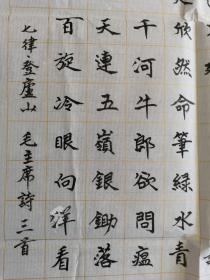 欣然命筆綠水青
千河牛郎欲問瘟
天連五嶺銀鋤落
百旋冷眼向洋看
七律登廬山 毛主席詩三首